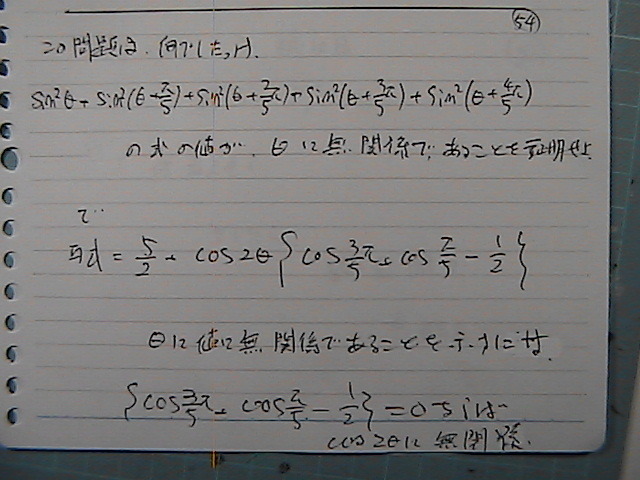 54
この問題は、何でしたっけ.
sin²θ + sin²(θ+π/5) + sin²(θ+2/5π) + sin²(θ+3/5π) + sin²(θ+4/5π)
の式の値が、θに無関係であることを証明せよ
で
与式 = 5/2 + cos2θ{cos3/5π + cosπ/5 - 1/2}
θに値に無関係であることを示すには
{cos3/5π + cosπ/5 - 1/2} = 0
cos2θに無関係.